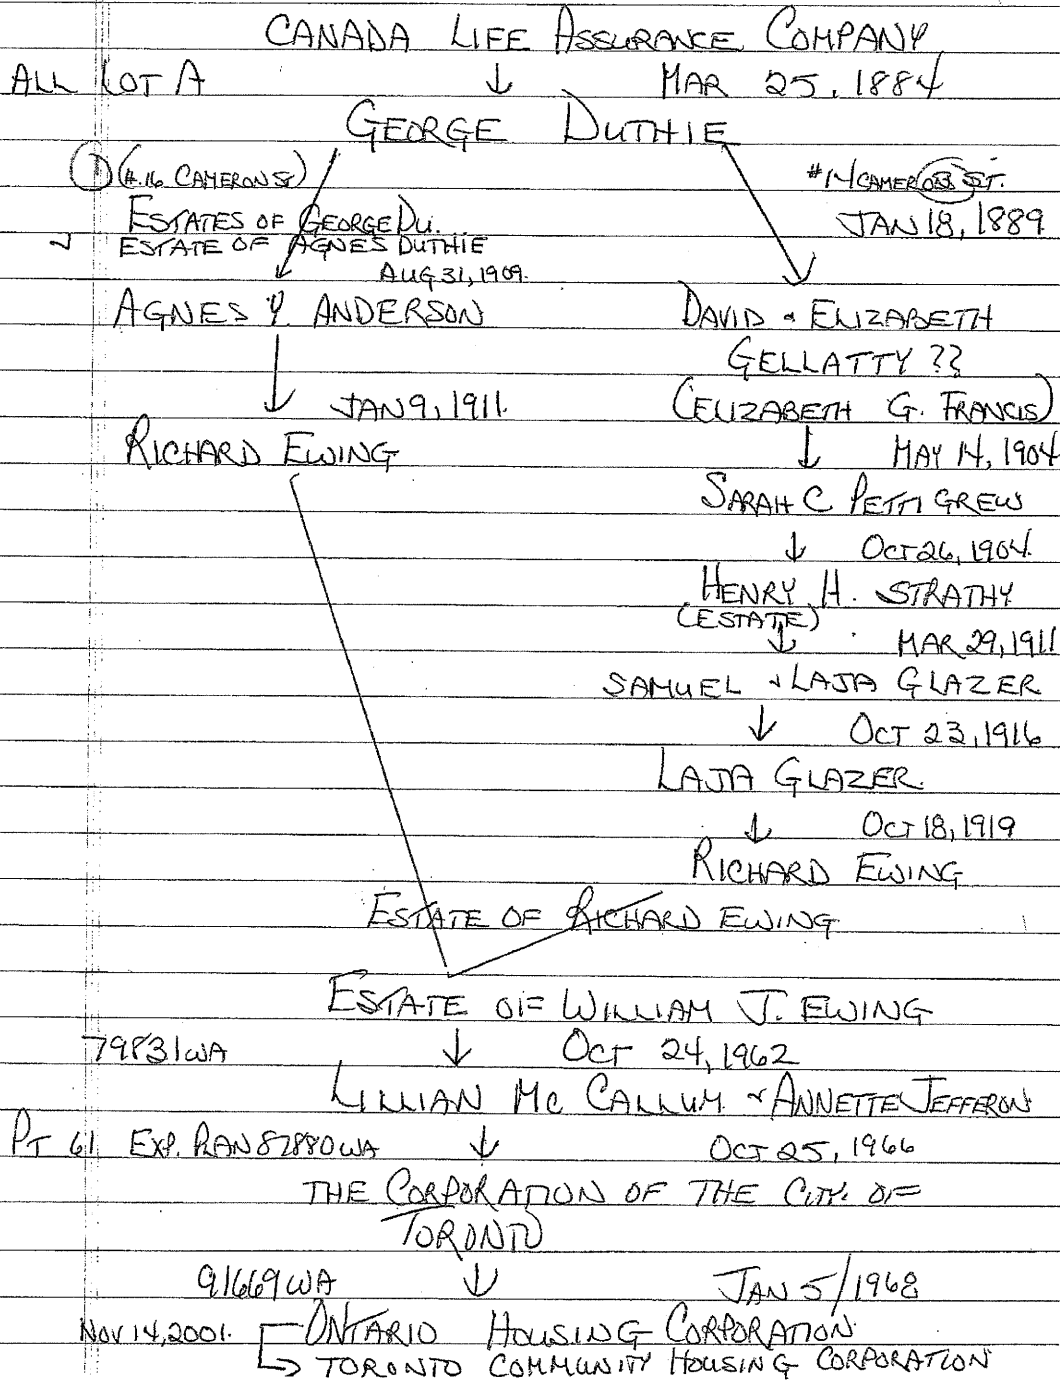 CANADA LIFE ASSURANCE COMPANY
ALL LOT A ↓ MAR 25, 1884
GEORGE DUTHIE
① (#16 CAMERON ST) #14 CAMERON ST.
ESTATES OF GEORGE DU. JAN 18, 1889
ESTATE OF AGNES DUTHIE
AUG 31, 1909.
AGNES Y. ANDERSON DAVID & ELIZABETH
GELLATTY ??
↓ JAN 9, 1911. (ELIZABETH G. FRANCIS)
RICHARD EWING ↓ MAY 14, 1904
SARAH C PETTIGREW
↓ OCT 26, 1904.
HENRY H. STRATHY
(ESTATE)
↓ MAR 29, 1911
SAMUEL & LAJA GLAZER
↓ OCT 23, 1916
LAJA GLAZER.
↓ OCT 18, 1919
RICHARD EWING
ESTATE OF RICHARD EWING
ESTATE OF WILLIAM J. EWING
79831WA ↓ OCT 24, 1962
LILLIAN MC CALLUM & ANNETTE JEFFERON
PT 61 EXP. PLAN 82880WA ↓ OCT 25, 1966
THE CORPORATION OF THE CITY OF
TORONTO
91669WA ↓ JAN 5/1968
NOV 14, 2001. ONTARIO HOUSING CORPORATION
→ TORONTO COMMUNITY HOUSING CORPORATION